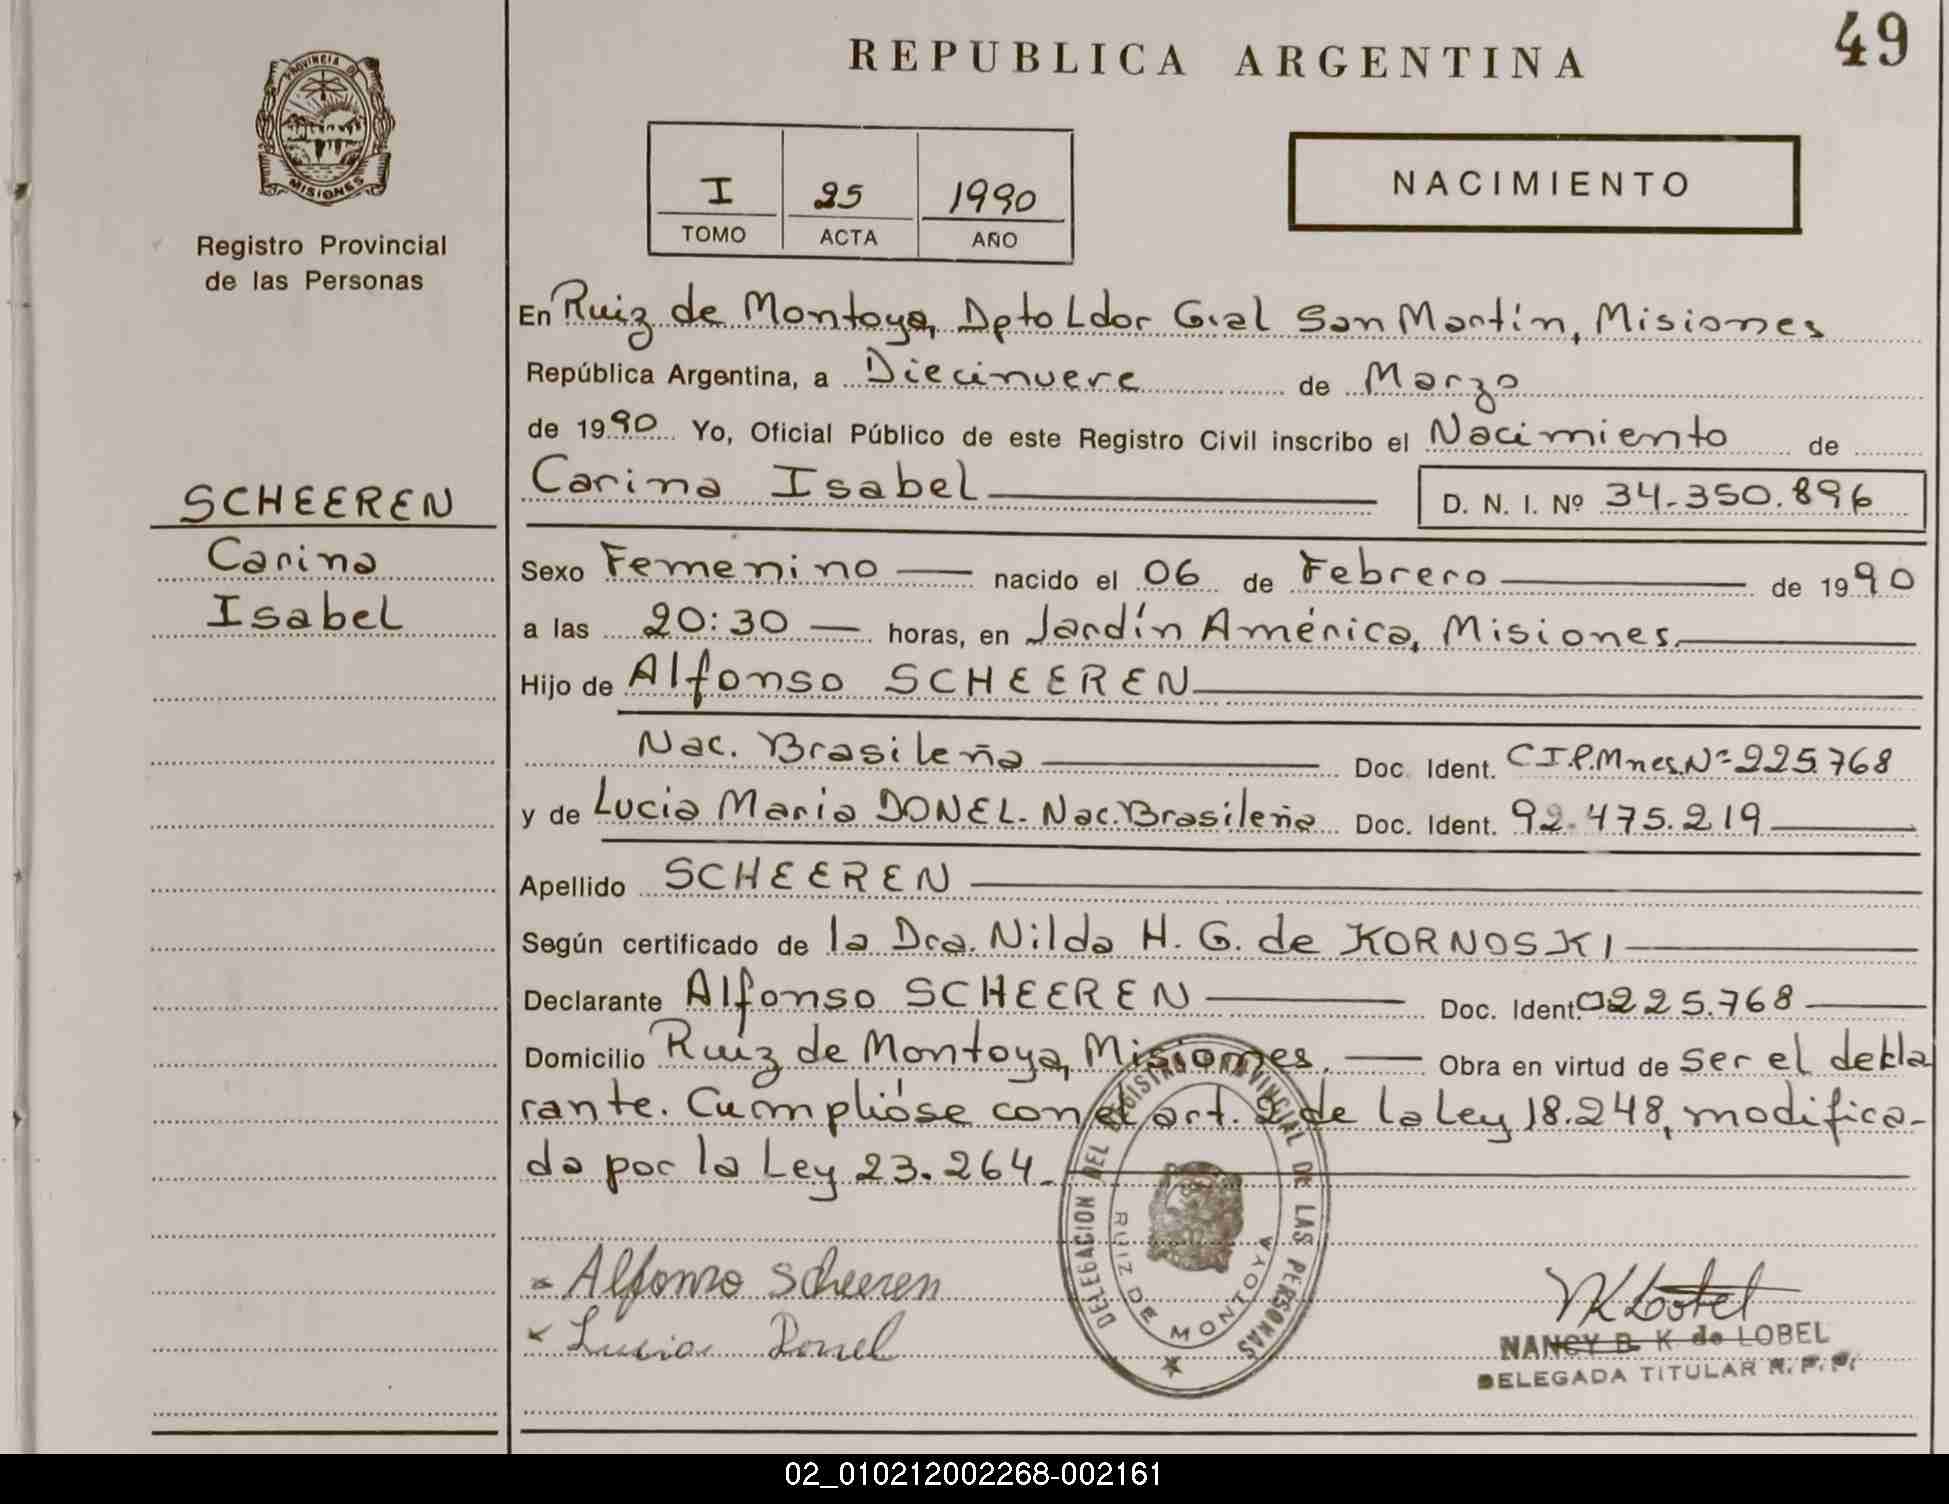 REPUBLICA ARGENTINA
49
PROVINCIA DE
MISIONES
Registro Provincial
de las Personas
I 25 1990
TOMO ACTA AÑO
NACIMIENTO
En Ruiz de Montoya, Dpto Ldor Gral San Martín, Misiones
República Argentina, a Diecinueve de Marzo
de 1990 Yo, Oficial Público de este Registro Civil inscribo el Nacimiento de
Carina Isabel D. N. I. Nº 34.350.896
SCHEEREN
Carina
Isabel
Sexo Femenino nacido el 06 de Febrero de 1990
a las 20:30 horas, en Jardín América, Misiones
Hijo de Alfonso SCHEEREN
Nac. Brasileña Doc. Ident. C.I.P.Mnes.Nº 225.768
y de Lucia Maria DONEL. Nac. Brasileña Doc. Ident. 92.475.219
Apellido SCHEEREN
Según certificado de la Dra. Nilda H. G. de KORNOSKI
Declarante Alfonso SCHEEREN Doc. Ident. 0225.768
Domicilio Ruiz de Montoya, Misiones. Obra en virtud de ser el decla
rante. Cumplióse con el art. 2 de la Ley 18.248, modifica-
da por la Ley 23.264.
DELEGACION DEL REGISTRO PROVINCIAL DE LAS PERSONAS
RUIZ DE MONTOYA
Alfonso Scheeren
Lucia Donel
NANCY B. K de LOBEL
DELEGADA TITULAR R. P. P.
02_010212002268-002161